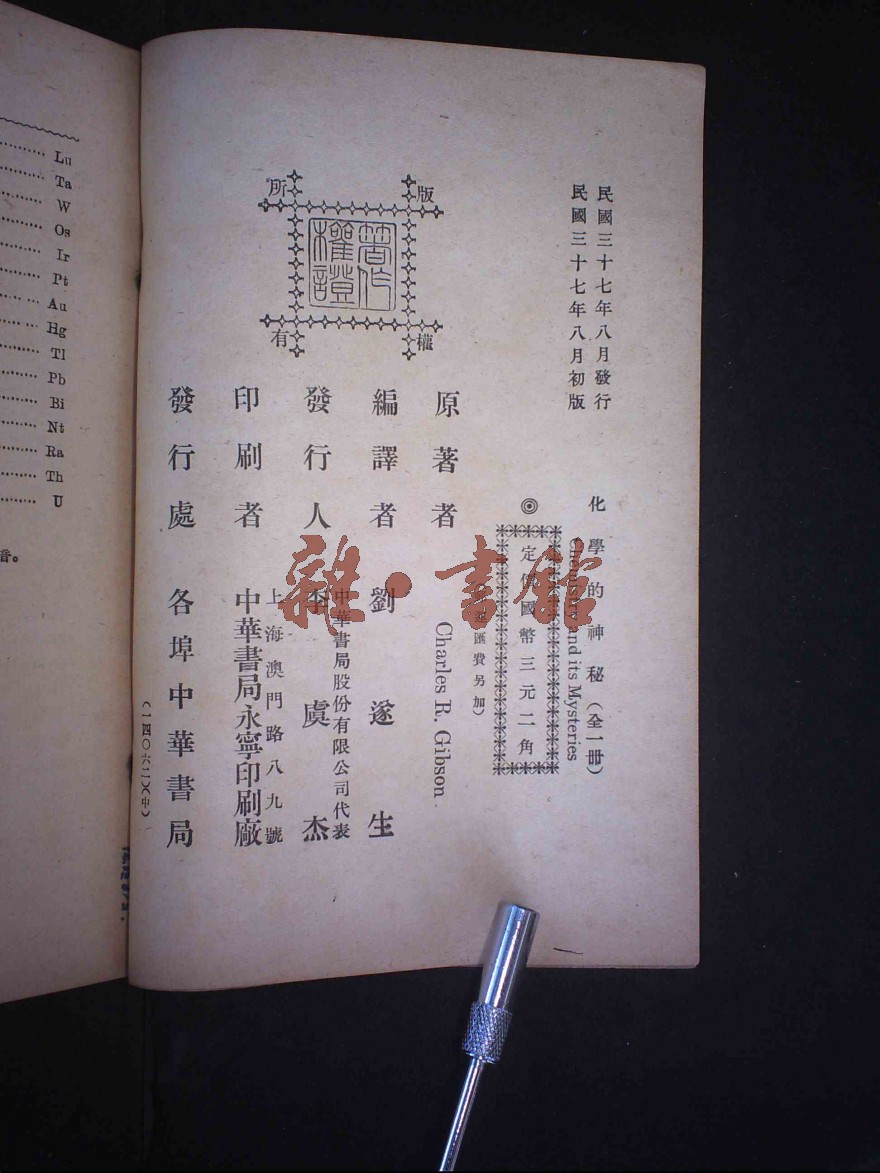 民國三十七年八月發行
民國三十七年八月初版
化學的神秘（全一冊）
Chemistry and its Mysteries
◎定價國幣三元二角
匯費另加）
原著者 Charles R. Gibson
編譯者 劉遂生
發行人 李虞杰
中華書局股份有限公司代表
印刷者 中華書局永寧印刷廠
上海澳門路八九號
發行處 各埠中華書局
（一四〇六二）（中）
版權所有
著作權證
雜·書館
Lu
Ta
W
Os
Ir
Pt
Au
Hg
Tl
Pb
Bi
Nt
Ra
Th
U
音。